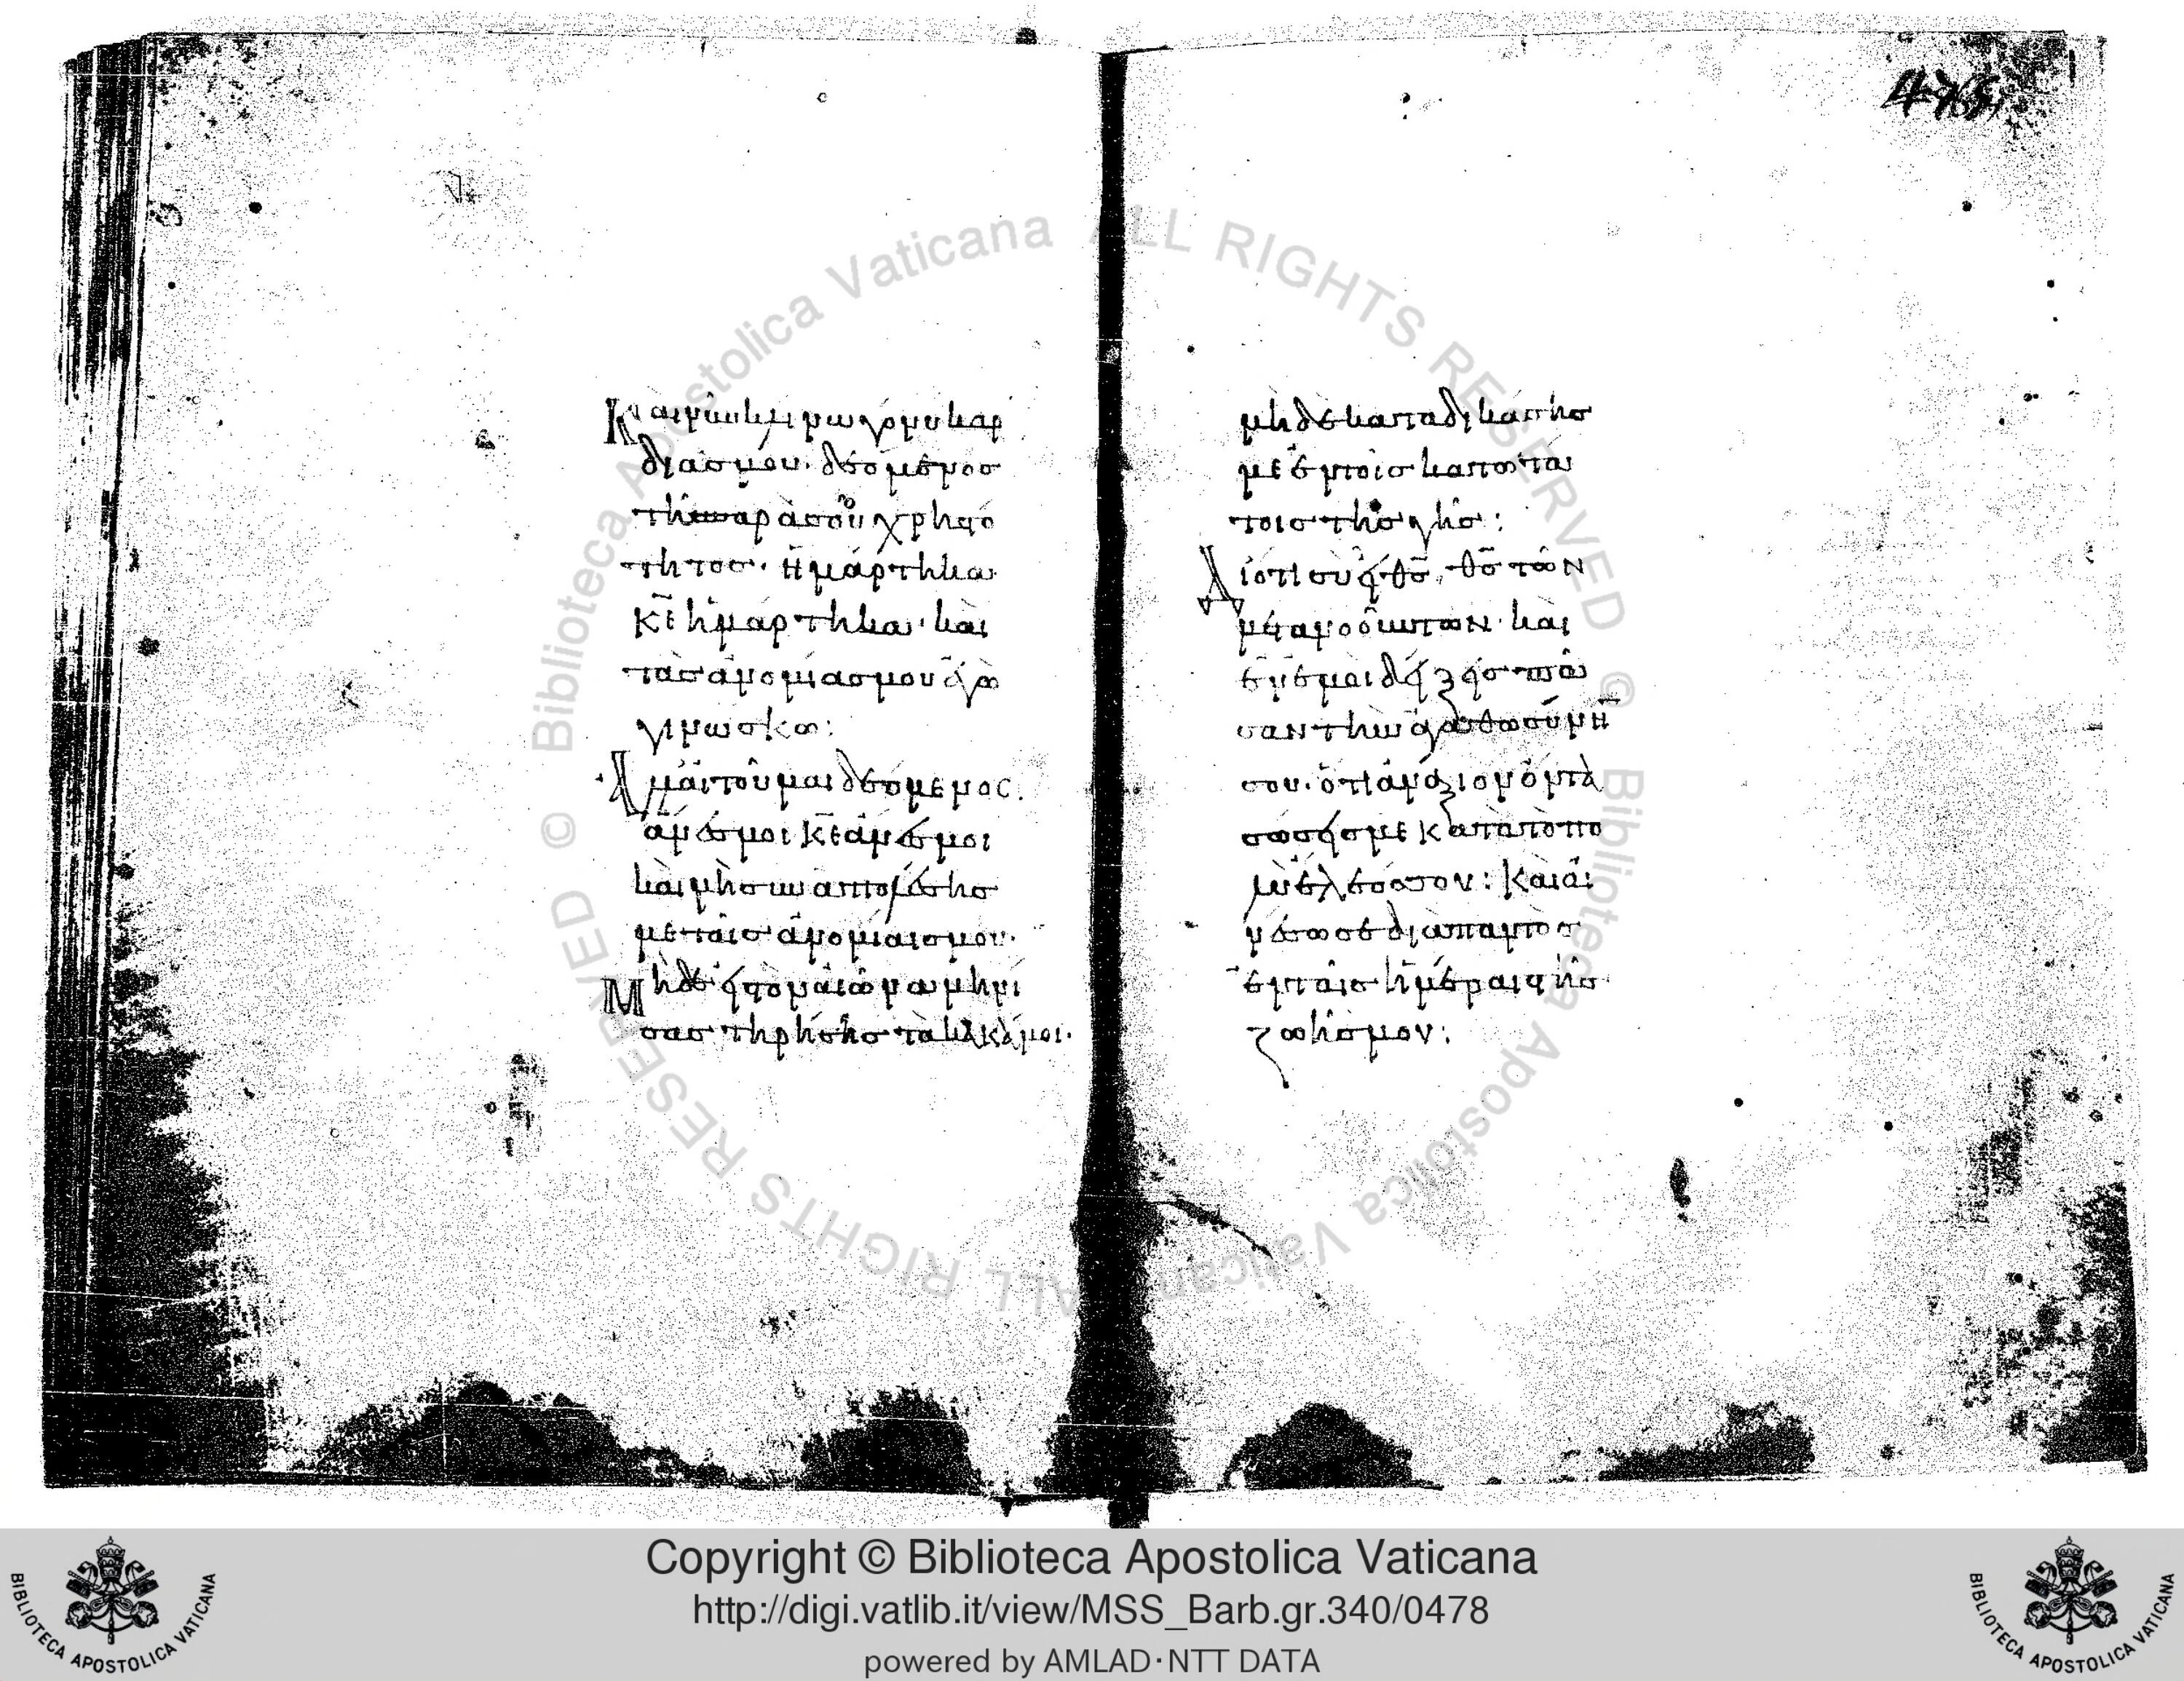 Καινῦν κλινω γόνυ καρ
δίασ μου· δεόμενοσ
τῆσ παρὰ σοῦ χρηστό
τητοσ· ἡμάρτηκα
κ̅ε̅ ἡμάρτηκα· καὶ
τὰσ ἀνομίασ μου ἐγὼ
γινώσκω:
Ἀλλ αἰτοῦμαι δεόμενος.
ἄνεσ μοι κ̅ε̅ ἄνεσ μοι
καὶ μὴ συναπολέσησ
με ταῖσ ἀνομίαισ μου·
Μηδὲ εἰς τὸν αἰῶνα μηνί
σασ τηρήσησ τὰ κακά μοι·
μηδὲ καταδικάσησ
με ἐν τοῖσ κατωτά
τοισ τῆσ γῆσ:
Διότι σὺ εἶ θ̅σ̅, θ̅σ̅ τῶν
μετανοούντων· καὶ
ἐν ἐμοὶ δείξεισ πᾶ
σαν τὴν ἀγαθωσύνη
σου· ὅτι ἀνάξιον ὄντα
σώσεισ με κατὰ τὸ πο
λὺ ἔλεόσ σου: Καὶ αἰ
νέσω σὲ διαπαντὸσ
ἐν ταῖσ ἡμέραισ τῆσ
ζωῆσ μου:
Copyright © Biblioteca Apostolica Vaticana
http://digi.vatlib.it/view/MSS_Barb.gr.340/0478
powered by AMLAD·NTT DATA
BIBLIOTECA APOSTOLICA VATICANA
BIBLIOTECA APOSTOLICA VATICANA
© Biblioteca Apostolica Vaticana ALL RIGHTS RESERVED © Biblioteca Apostolica Vaticana ALL RIGHTS RESERVED